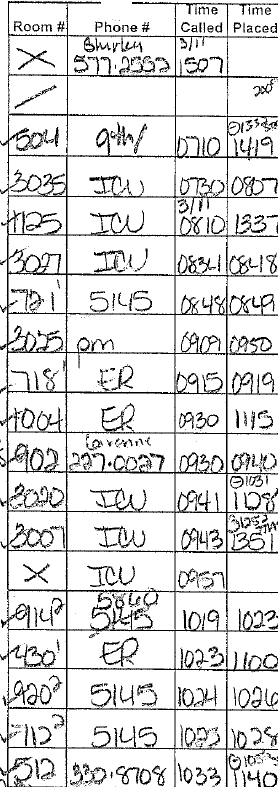 Room # Phone # Time Called Time Placed
X Shirley 577.2552 3/11 1507
/
504 0710 1419
3035 ICU 0730 0807
1125 ICU 3/11 0810 1337
3027 ICU 0834 0848
721' 5145 0848 0849
3025 om 0909 0950
718' ER 0915 0919
1004 ER 0930 1115
902 227.0027 0930 0940
3020 ICU 0941 1031 1108
3007 ICU 0943 1351
X ICU 0957
914² 5840 5145 1019 1023
430' ER 1023 1100
920² 5145 1024 1026
712² 5145 1023 1028
512 330.8708 1033 1140